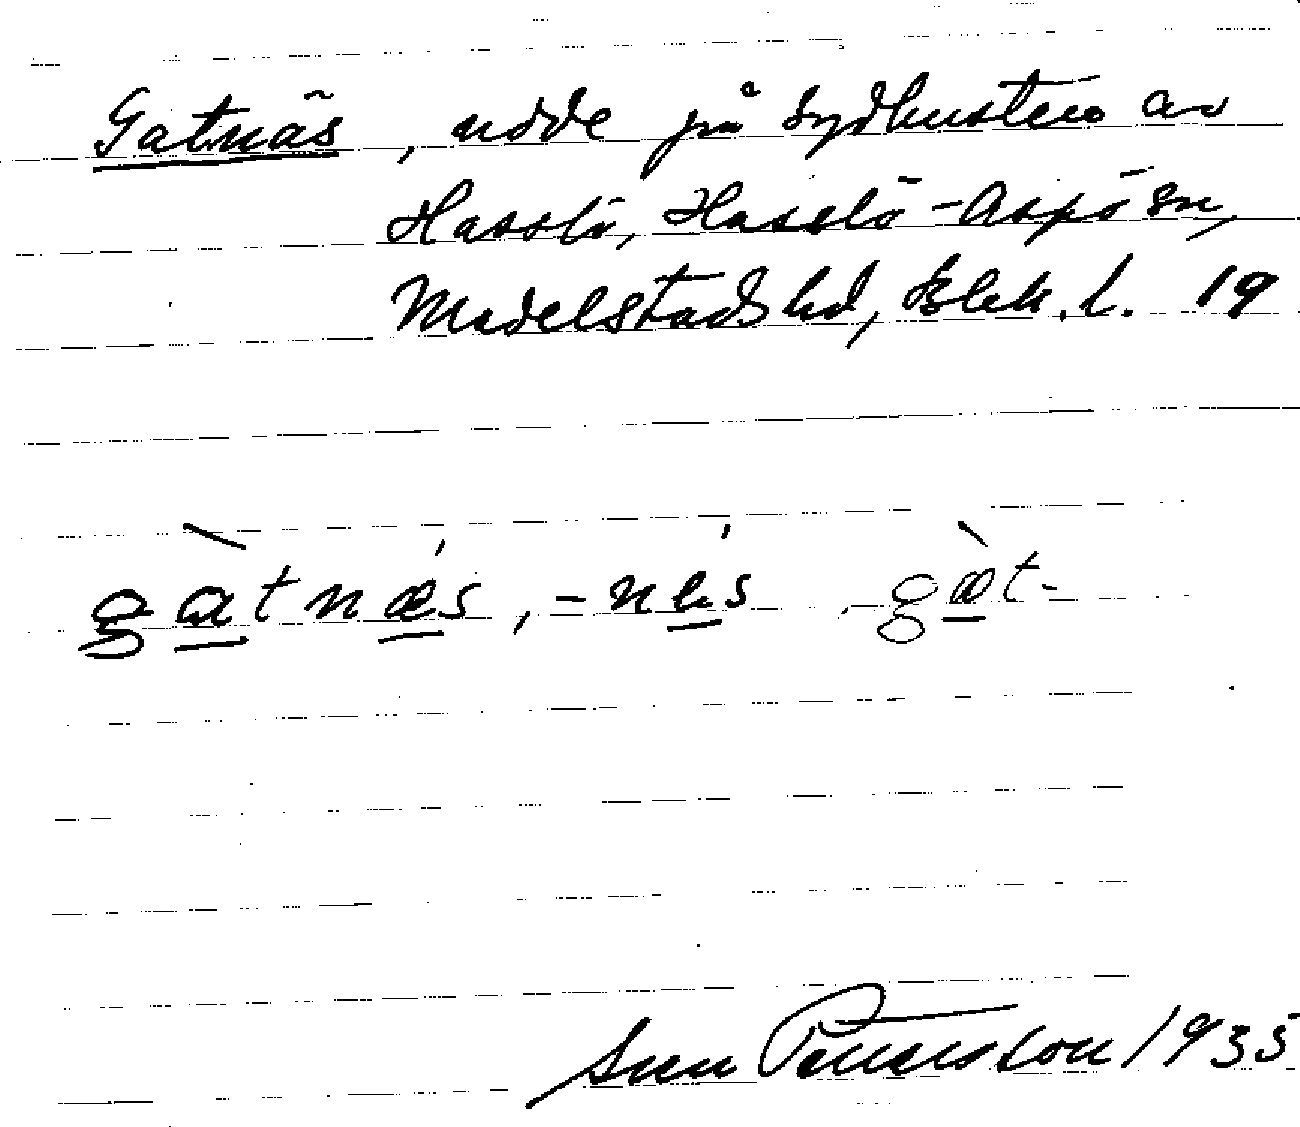 Gatnäs, udde på sydkusten av
Hasslö, Hasslö-Aspö sn,
Medelstads hd, Blek. l. 19
gàtnæ's, -ne's, gæ̀t-
Sven Petersson 1935